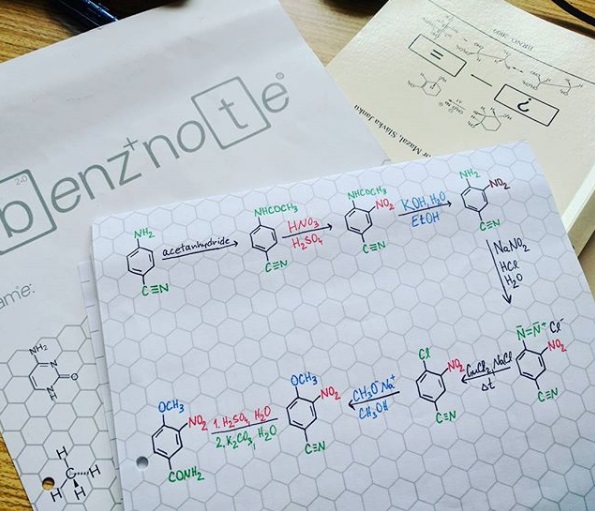 benz+note
2.0
ame:
NH₂
N
O
N
H
H
C
H
H
H
= 
?
or Mazal, Slávka Janků
NH₂
C≡N
acetanhydride
NHCOCH₃
C≡N
HNO₃
H₂SO₄
NHCOCH₃
NO₂
C≡N
KOH, H₂O
EtOH
NH₂
NO₂
C≡N
NaNO₂
HCl
H₂O
N̄=N⁺ Cl⁻
NO₂
C≡N
CuCl₂, NaCl
Δt
Cl
NO₂
C≡N
CH₃O⁻Na⁺
CH₃OH
OCH₃
NO₂
C≡N
1. H₂SO₄, H₂O
2, K₂CO₃, H₂O
OCH₃
NO₂
CONH₂